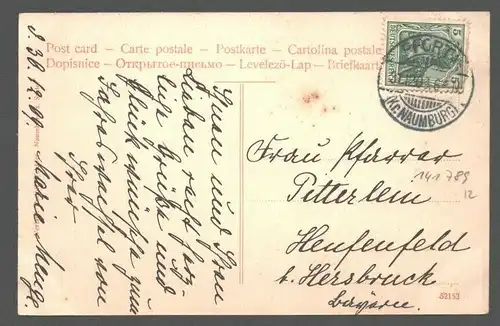 Post card – Carte postale – Postkarte – Cartolina postale
Dopisnice – Открытое письмо – Levelező-Lap – Briefkaart
5
PFORTA
(Kr. NAUMBURG)
Ihnen und Ihren
Lieben recht herz-
liche Grüße und
Glückwünsche zum
Jahreswechsel von
Ihrer
Marie
Frau Pfarrer
Pitterlein
Henfenfeld
b. Hersbruck
Bayern.
141 789
12
52152